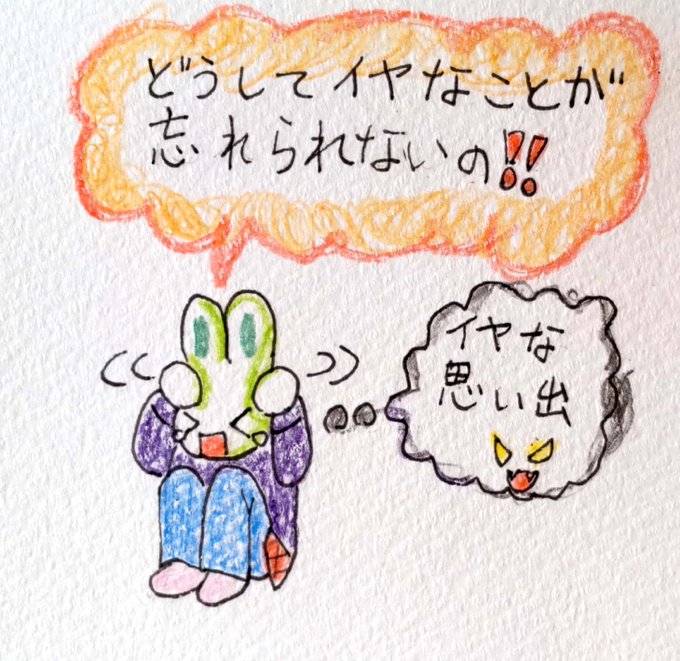 どうしてイヤなことが
忘れられないの!!
イヤな
思い出